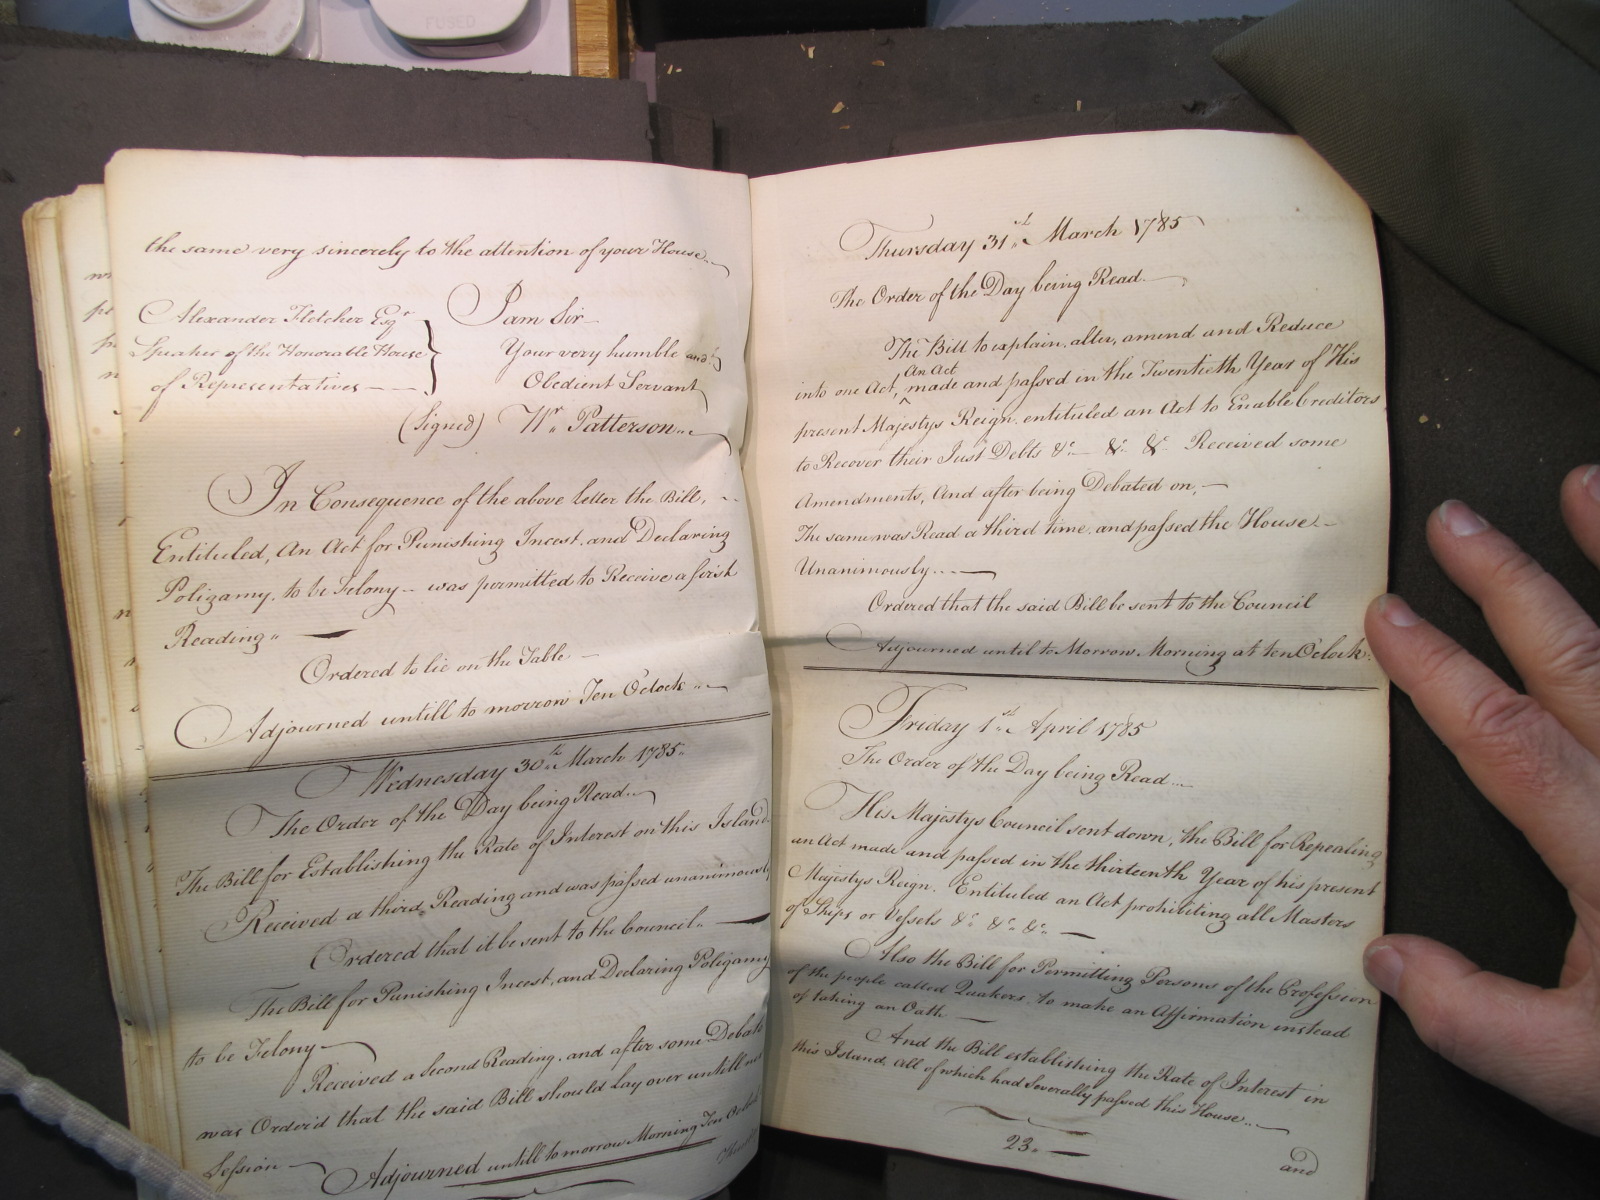 FUSED
the same very sincerely to the attention of your House
Alexander Fletcher Esqr
Speaker of the Honorable House
of Representatives
I am Sir
Your very humble and
Obedient Servant
(Signed) Wr. Patterson
In Consequence of the above Letter the Bill,
Entituled, An Act for Punishing Incest, and Declaring
Poligamy, to be Felony - was permitted to Receive a first
Reading
Ordered to lie on the Table
Adjourned untill to morrow Ten OClock
Wednesday 30th March 1785
The Order of the Day being Read
The Bill for Establishing the Rate of Interest on this Island
Received a third Reading and was passed unanimously
Ordered that it be sent to the Council
The Bill for Punishing Incest, and Declaring Poligamy
to be Felony
Received a Second Reading, and after some Debate
was Order'd that the said Bill should lay over untill
Session
Adjourned untill to morrow Morning Ten OClock
Thursday 31st March 1785
The Order of the Day being Read
The Bill to explain, alter, amend and Reduce
into one Act, An Act made and passed in the Twentieth Year of His
present Majestys Reign, entituled an Act to Enable Creditors
to Recover their Just Debts &c &c &c Received some
Amendments, And after being Debated on,
The same was Read a third time, and passed the House
Unanimously
Ordered that the said Bill be sent to the Council
Adjourned until to Morrow Morning at ten OClock
Friday 1st April 1785
The Order of the Day being Read
His Majestys Council sent down, the Bill for Repealing
an Act made and passed in the thirteenth Year of his present
Majestys Reign. Entituled an Act prohibiting all Masters
of Ships or Vessels &c &c &c
Also the Bill for Permitting Persons of the Profession
of the people called Quakers, to make an Affirmation instead
of taking an Oath
And the Bill establishing the Rate of Interest in
this Island, All of which had Severally passed this House
23
and